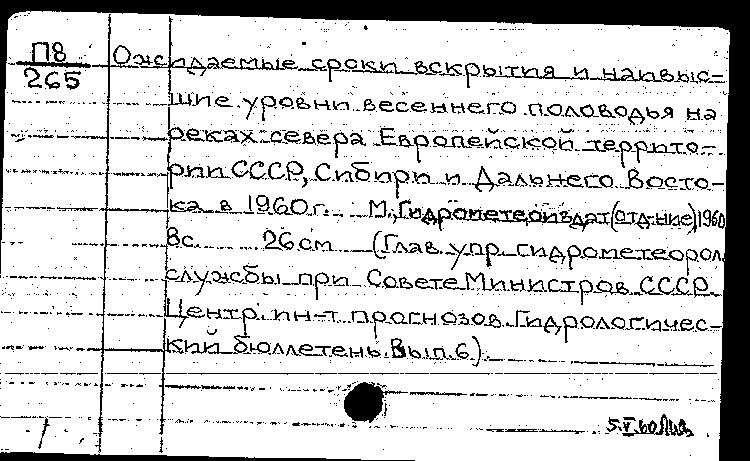 П8
265
Ожидаемые сроки вскрытия и наивыс-
шие уровни весеннего половодья на
реках севера Европейской террито-
рии СССР, Сибири и Дальнего Восто-
ка в 1960г. М., Гидрометеоиздат (отд-ние), 1960
8с. 26см (Глав. упр. гидрометеорол.
службы при Совете Министров СССР.
Центр. ин-т прогнозов. Гидрологичес-
кий бюллетень. Вып. 6).
5.V.60